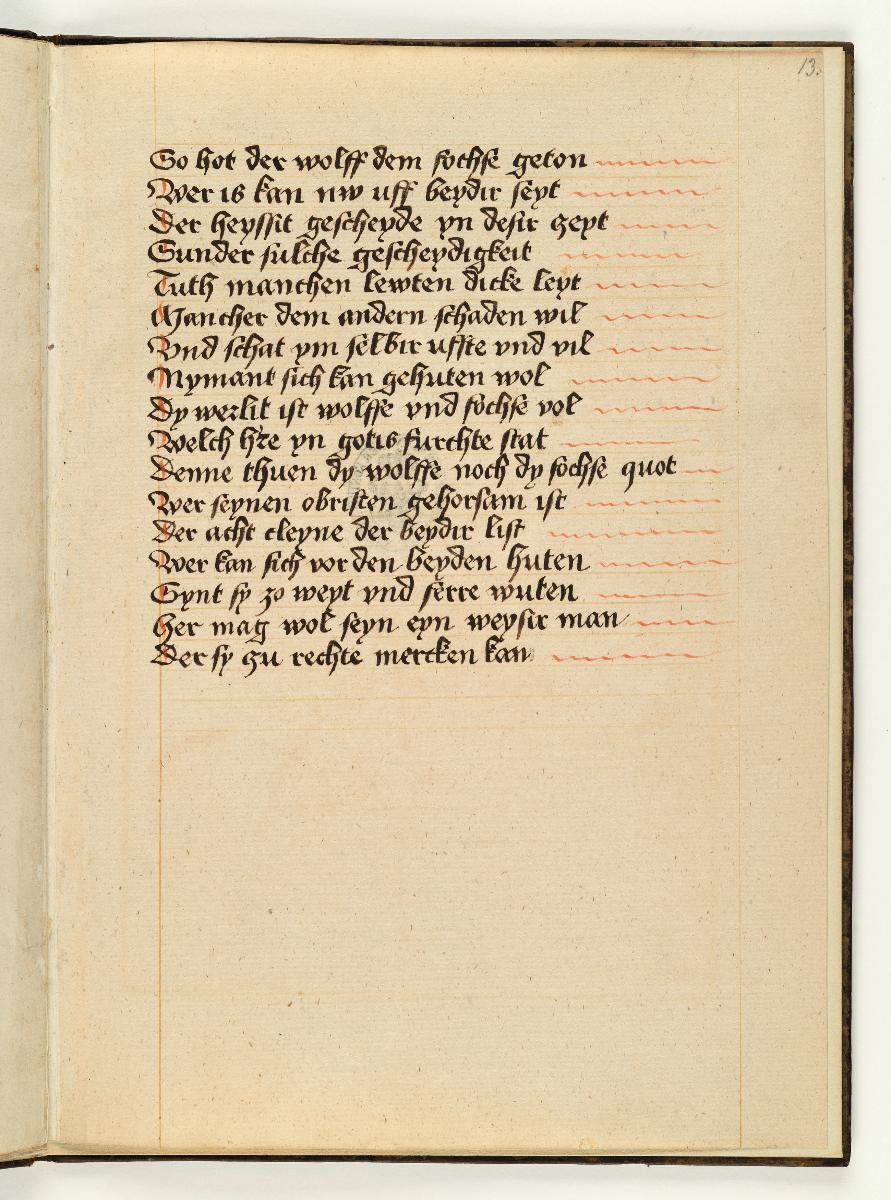 13.
So hot der wolff dem fochse geton
Wer is kan nw uff beydir seyt
Der heyssit gescheyde yn desir czeyt
Sunder sulche gescheydigkeit
Tuth manchen lewten dicke leyt
Mancher dem andern schaden wil
Vnd schat ym selbir uffte vnd vil
Nymant sich kan gehuten wol
Dy werlit ist wolffe vnd fochse vol
Welch h're yn gotis furchte stat
Denne thuen dy wolffe noch dy fochse quot
Wer seynen obristen gehorsam ist
Der acht cleyne der beydir list
Wer kan sich vor den beyden huten
Synt sy zo weyt vnd serre wuten
Her mag wol seyn eyn weysir man
Der sy czu rechte mercken kan